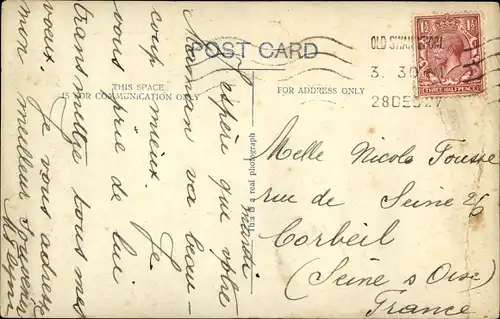 POST CARD
THIS SPACE
IS FOR COMMUNICATION ONLY
FOR ADDRESS ONLY
This is a real photograph
OLD SWAN
3. 30
28 DEC
THREE HALFPENCE
J'espère que votre
Maman va beau-
coup mieux. Je
vous prie de lui
transmettre tous mes
voeux. Je vous adresse
mon meilleur Souvenir
Melle Nicole Fousse
rue de Seine 26
Corbeil
(Seine & Oise)
France